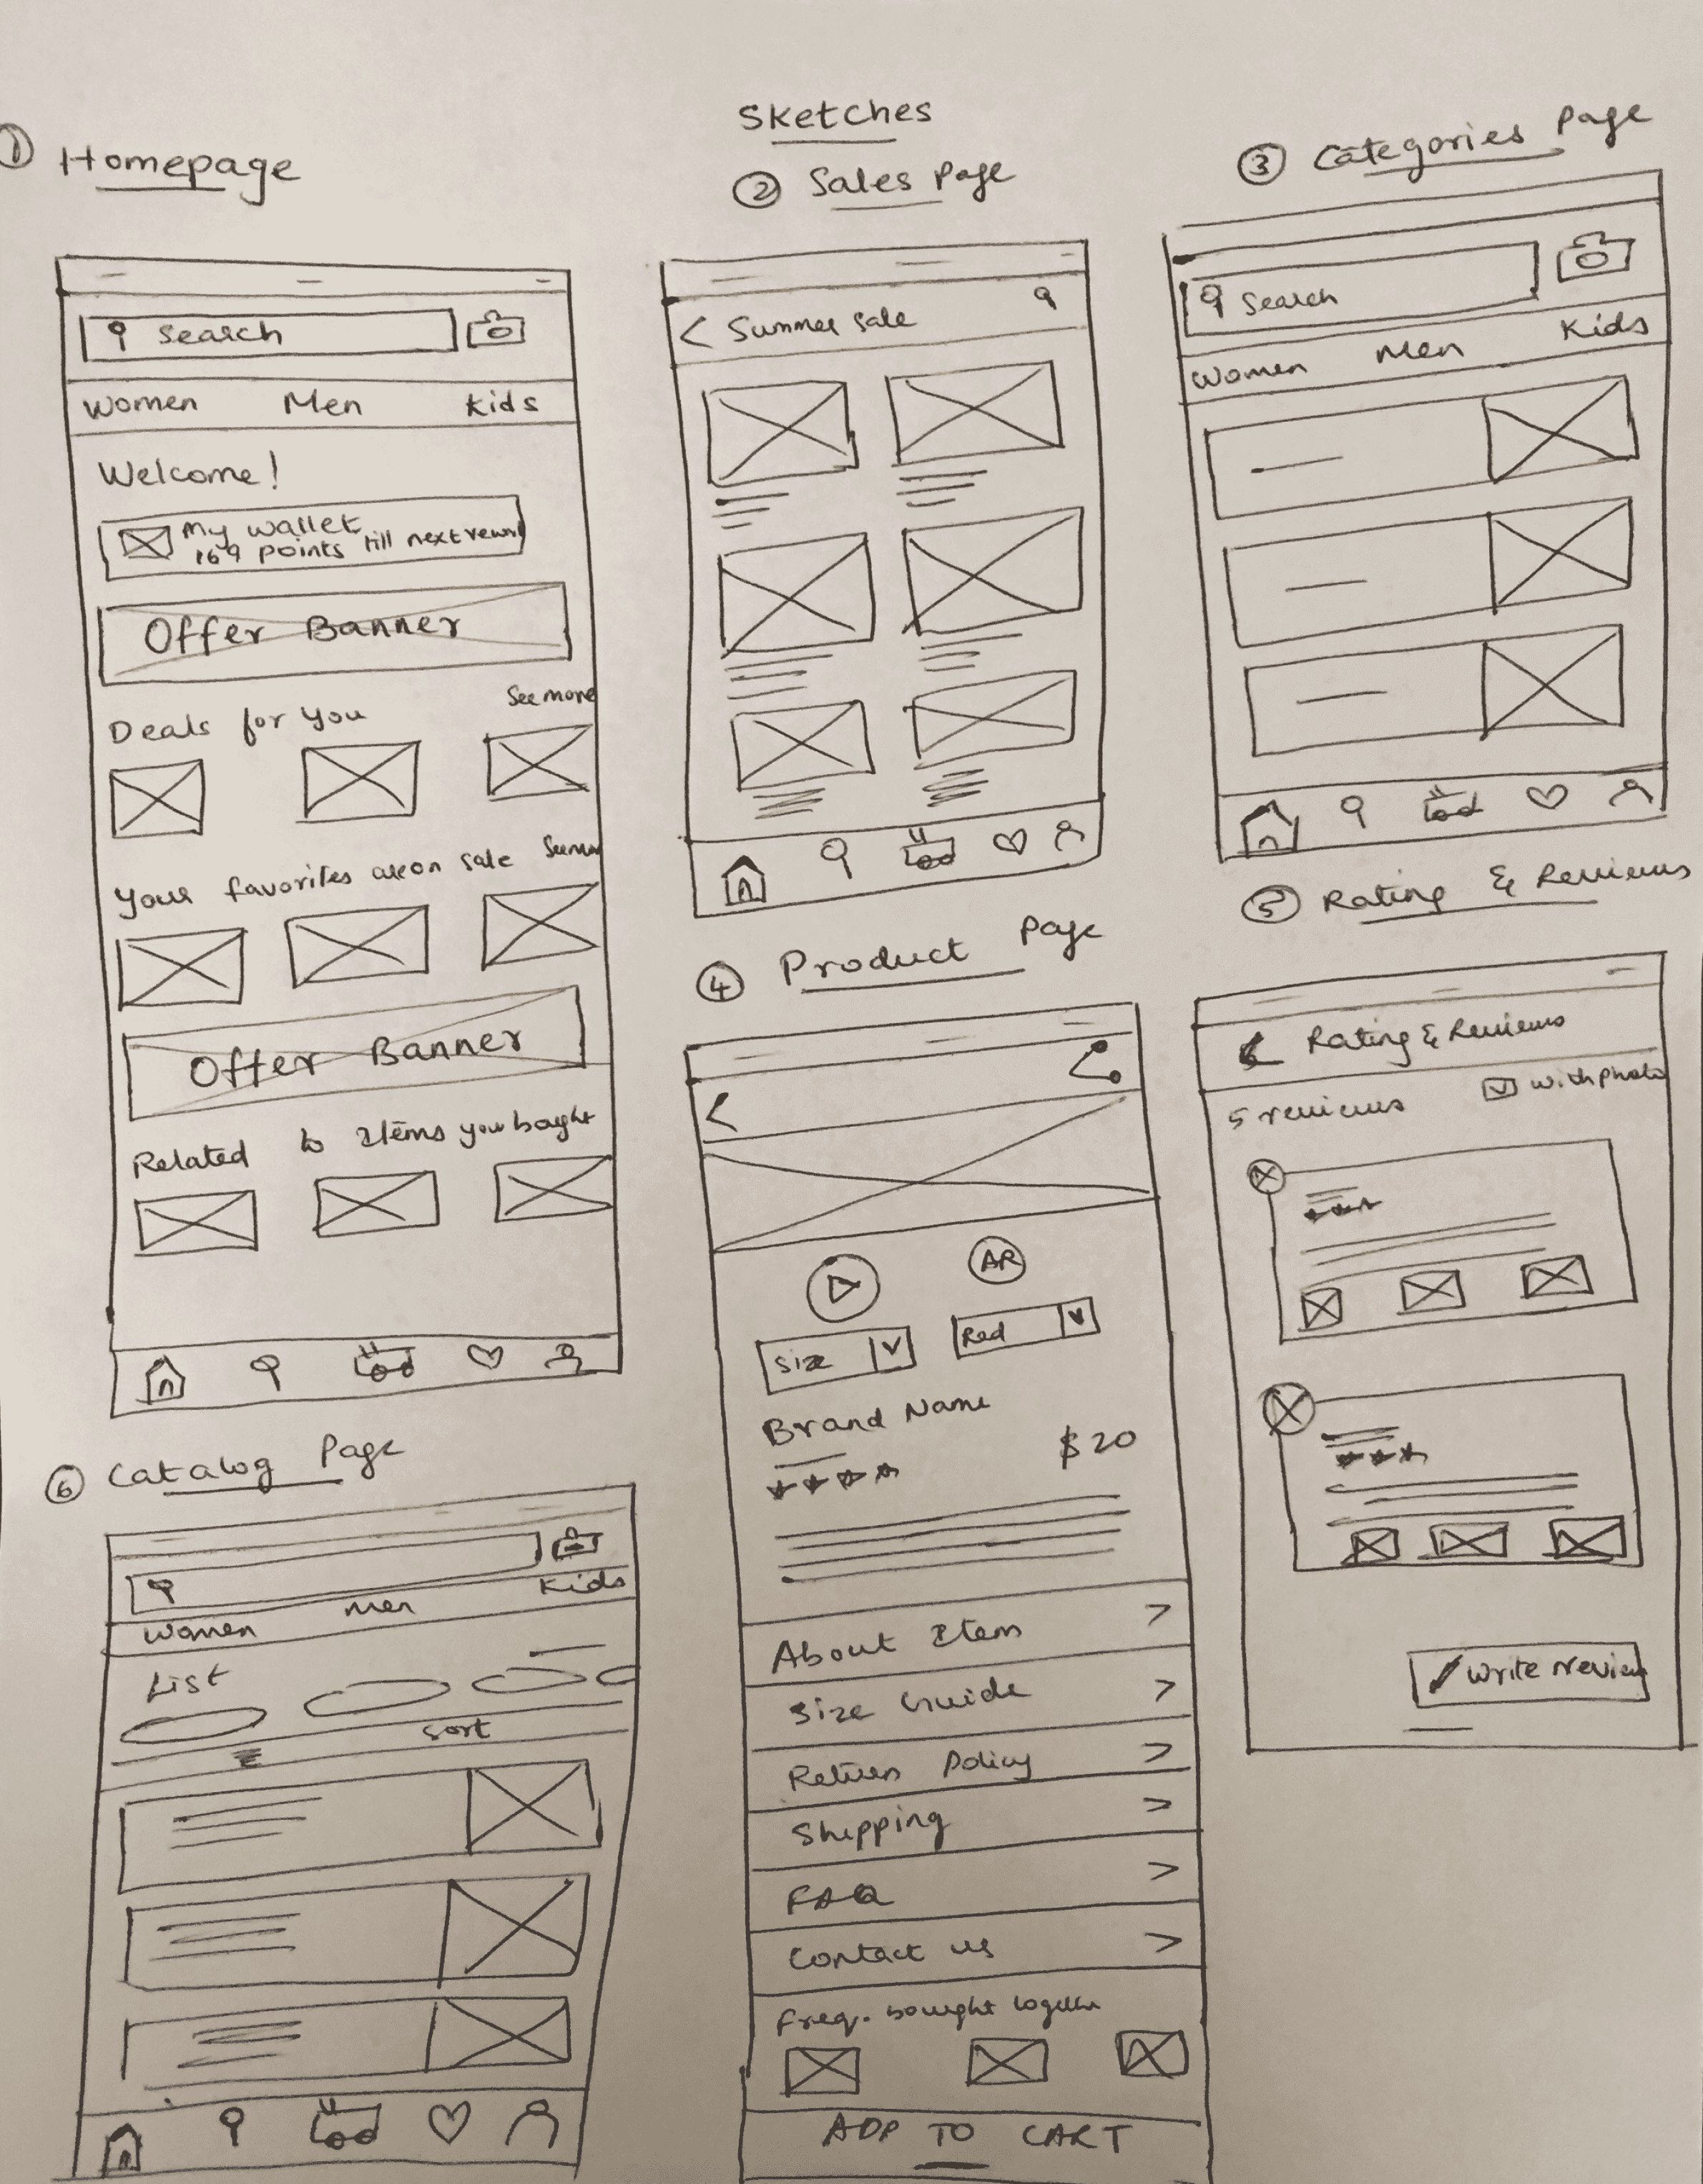 Sketches
① Homepage
Search
Women Men Kids
Welcome!
My wallet
169 points till next rewrd
Offer Banner
Deals for you See more
Your favorites are on sale See more
Offer Banner
Related to Items you bought
② Sales Page
< Summer Sale
③ Categories Page
Search
Women Men Kids
④ Product Page
<
AR
Size Red
Brand Name
$20
About Item >
Size Guide >
Return Policy >
Shipping >
FAQ >
Contact us >
Freq. bought together
ADD TO CART
⑤ Rating & Reviews
Rating & Reviews
5 reviews with photo
Write review
⑥ Catalog Page
Women Men Kids
List
Sort